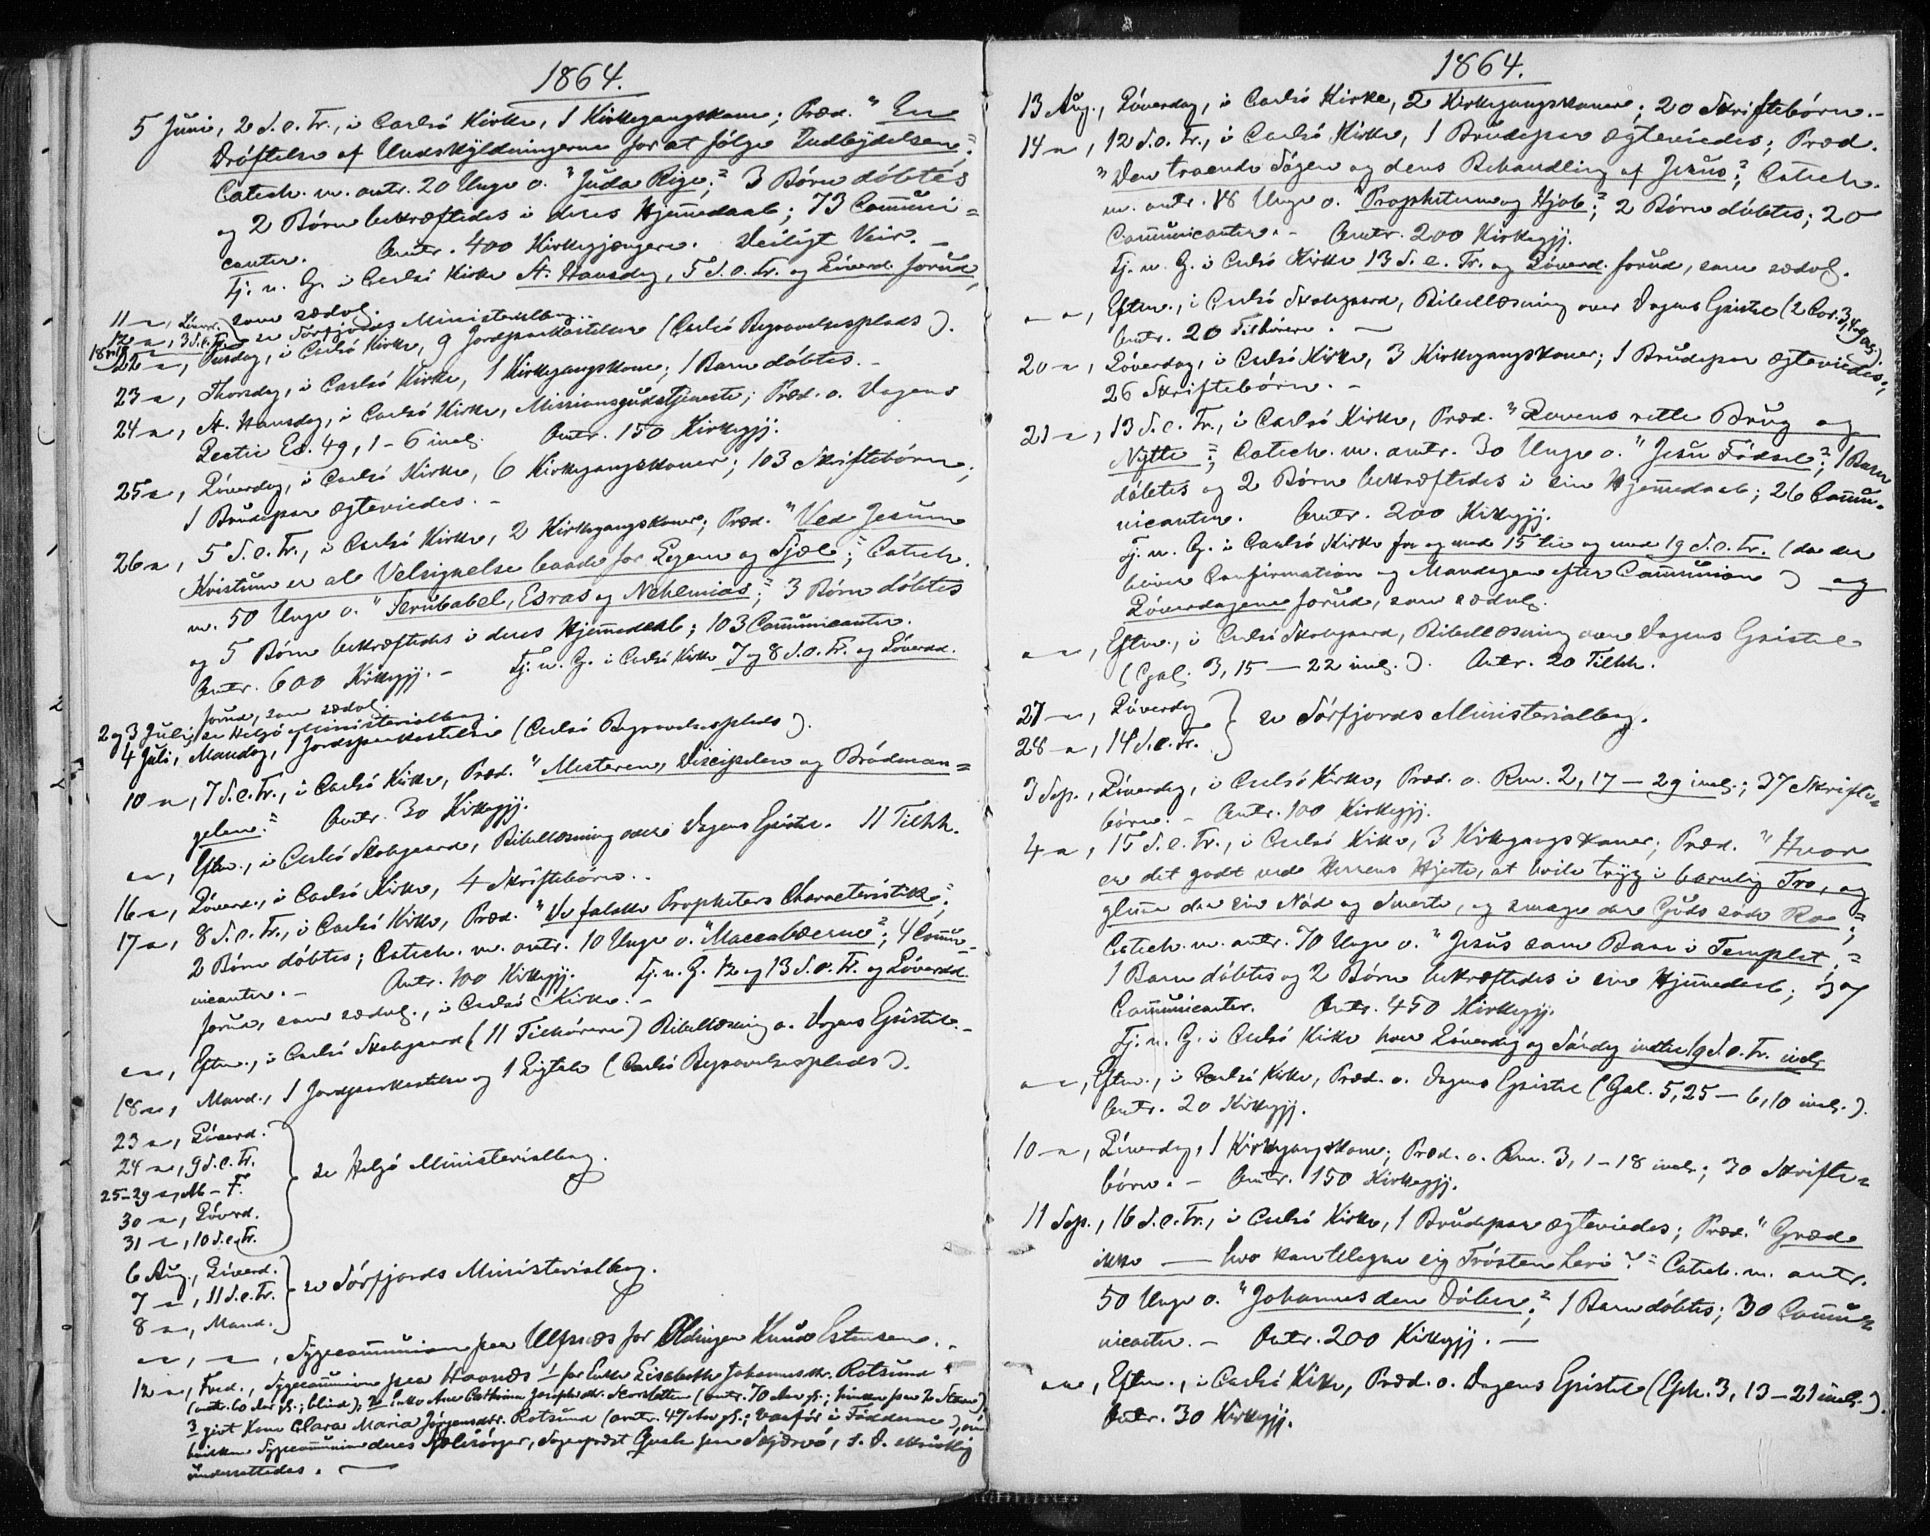 1864.
5 Juni, 2 S. e. Tr., i Carlsö Kirke, 1 Kirkegangskone; Præd. "En
Dröftelse af Undskyldningerne for at fölge Indbydelsen";
Catech. m. omtr. 20 Unge o. "Juda Rige"; 3 Börn döbtes
og 2 Börn bekræftedes i deres Hjemmedaab; 73 Communi=
canter. Omtr. 400 Kirkegjængere. Deiligt Veir. –
Tj. n. G. i Carlsö Kirke St. Hansdag, 5 S. e. Tr. og Löverd. forud,
som sædvl.
11 –, Löverd.
12 –, 3 S. e. Tr. se Sörfjords Ministerialbog.
22 –, Onsdag, i Carlsö Kirke, 9 Jordpaakastelser (Carlsö Begravelsesplads).
23 –, Thorsdag, i Carlsö Kirke, 1 Kirkegangskone; 1 Barn döbtes. –
24 –, St. Hansdag, i Carlsö Kirke, Missionsgudstjeneste; Præd. o. Dagens
Lectie Es. 49, 1 – 6 incl. Omtr. 150 Kirkegjj.
25 –, Löverdag, i Carlsö Kirke, 6 Kirkegangskoner; 103 Skriftebörn;
1 Brudepar ægteviedes. –
26 –, 5 S. e. Tr., i Carlsö Kirke, 2 Kirkegangskoner; Præd. "Ved Jesum
Kristum er al Velsignelse baade for Legeme og Sjæl"; Catech.
m. 50 Unge o. "Serubabel, Esras og Nehemias"; 3 Börn döbtes
og 5 Börn bekræftedes i deres Hjemmedaab; 103 Communicanter.
Omtr. 600 Kirkegjj. – Tj. n. G. i Carlsö Kirke 7 og 8 S. e. Tr. og Löverdd.
forud, som sædvl.
2 og 3 Juli, se Helgö Ministerialbog.
4 Juli, Mandag, 1 Jordpaakastelse (Carlsö Begravelsesplads).
10 –, 7 S. e. Tr., i Carlsö Kirke, Præd. "Mesteren, Disciplene og Brödman=
gelen." Omtr. 30 Kirkegjj.
– –, Eftm., i Carlsö Skolegaard, Bibellæsning over Dagens Epistel. 11 Tilhh.
16 –, Löverd., i Carlsö Kirke, 4 Skriftebörn. –
17 –, 8 S. e. Tr., i Carlsö Kirke, Præd. "De falske Propheters Characteristik";
2 Börn döbtes; Catech. m. omtr. 10 Unge o. "Maccabæerne"; 4 Commu=
nicanter. – Omtr. 100 Kirkegjj. Tj. n. G. 12 og 13 S. e. Tr. og Löverdd.
forud, som sædvl., i Carlsö Kirke. –
– –, Eftm., i Carlsö Skolegaard (11 Tilhörere) Bibellæsning o. Dagens Epistel. –
18 –, Mand., 1 Jordpaakastelse og 1 Ligtale (Carlsö Begravelsesplads).
23 –, Löverd.
24 –, 9 S. e. Tr.
25–29 –, M – F. se Helgö Ministerialbog.
30 –, Löverd.
31 –, 10 S. e. Tr.
6 Aug., Löverd.
7 –, 11 S. e. Tr. se Sörfjords Ministerialbog.
8 –, Mand.
– –, –, Sygecommunion paa Ulfsnæs for Oldingen Knud Estensen. –
12 –, Fred., Sygecommunion paa Havnnæs 1 for Enke Elisabeth Johannesdtr. Rotsund
(omtr. 60 Aar gl.; blind); 2 Enke Ane Cathrina Josephsdtr. (omtr. 70 Aar gl.;
3 gift Kone Clara Maria Jörgensdtr. Rotsund (omtr. 47 Aar gl.; vanför i Födderne), om
hvilken Sygecommunion deres Sjælesörger, Sogneprest paa Skjærvö, s. D. skriftlig
underrettedes. –
1864.
13 Aug., Löverdag, i Carlsö Kirke, 2 Kirkegangskoner; 20 Skriftebörn. –
14 –, 12 S. e. Tr., i Carlsö Kirke, 1 Brudepar ægteviedes; Præd.
"Den troende Sögen og dens Behandling af Jesus"; Catech.
m. omtr. 18 Unge o. "Propheterne og Hjob"; 2 Börn döbtes; 20
Communicanter. – Omtr. 200 Kirkegjj.
Tj. n. G. i Carlsö Kirke 13 S. e. Tr. og Löverd. forud, som sædvl.
– –, Eftm., i Carlsö Skolegaard, Bibellæsning over Dagens Epistel (2 Cor. 3, 4–9).
Omtr. 20 Tilhörere. –
20 –, Löverdag, i Carlsö Kirke, 3 Kirkegangskoner; 1 Brudepar ægteviedes;
26 Skriftebörn. –
21 –, 13 S. e. Tr., i Carlsö Kirke, Præd. "Lovens rette Brug og
Nytte"; Catech. m. omtr. 30 Unge o. "Jesu Födsel"; 1 Barn
döbtes og 2 Börn bekræftedes i sin Hjemmedaab; 26 Commu=
nicanter. Omtr. 200 Kirkegjj.
Tj. n. G. i Carlsö Kirke fra og med 15 til og med 19 S. e. Tr. (da der
bliver Confirmation og Mandagen efter Communion) og
Löverdagene forud, som sædvl.
– –, Eftm., i Carlsö Skolegaard, Bibellæsning over Dagens Epistel
(Gal. 3, 15 – 22 incl.). Omtr. 20 Tilhh.
27 –, Löverdag
28 –, 14 S. e. Tr. se Sörfjords Ministerialbog.
3 Sep., Löverdag, i Carlsö Kirke, Præd. o. Rom. 2, 17 – 29 incl.; 37 Skrifte=
börn. – Omtr. 100 Kirkegjj.
4 –, 15 S. e. Tr., i Carlsö Kirke, 3 Kirkegangskoner; Præd. "Hvor
er det godt ved Herrens Hjerte, at hvile tryg i barnlig Tro, og
glemme der sin Nöd og Smerte, og smage der Guds söde Ro";
Catech. m. omtr. 70 Unge o. "Jesus som Barn i Templet";
1 Barn döbtes og 2 Börn bekræftedes i sin Hjemmedaab; 37
Communicanter. Omtr. 450 Kirkegjj.
Tj. n. G. i Carlsö Kirke hver Löverdag og Söndag indtil 19 S. e. Tr. incl.
– –, Eftm., i Carlsö Kirke, Præd. o. Dagens Epistel (Gal. 5, 25 – 6, 10 incl.).
Omtr. 20 Kirkegjj.
10 –, Löverdag, 1 Kirkegangskone; Præd. o. Rom. 3, 1 – 18 incl.; 30 Skrifte=
börn. – Omtr. 150 Kirkegjj.
11 Sep., 16 S. e. Tr., i Carlsö Kirke, 1 Brudepar ægteviedes; Præd. "Græd
ikke — hvo kan tilegne sig Trösten heri?" Catech. m. omtr.
50 Unge o. "Johannes den Döber"; 1 Barn döbtes; 30 Commu=
nicanter. – Omtr. 200 Kirkegjj. –
– –, Eftm., i Carlsö Kirke, Præd. o. Dagens Epistel (Eph. 3, 13 – 21 incl.).
Omtr. 30 Kirkegjj.